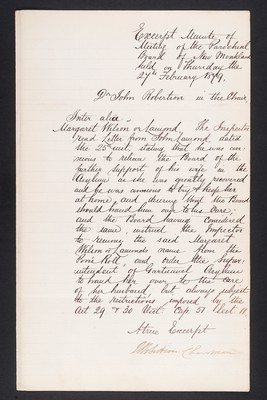 Excerpt Minute of
Meeting of the Parochial
Board of New Monkland
held on Thursday the
27th February 1879.
Dr John Robertson in the Chair
Inter alia
Margaret Wilson or Lamond, The Inspector
read Letter from John Lamond, dated
the 25th inst, stating that he was an-
xious to relieve the Board of the
further support of his wife in the
Asylum as she was greatly recovered
and he was anxious to try & keep her
at home, and desiring that the Board
should hand him over to his Care,
and the Board having considered
the same, instruct the Inspector
to remove the said Margaret
Wilson or Lamonds name from the
Poors Roll and order the Super-
intendent of Gartnavel Asylum
to hand her over to the care
of her husband, but always subject
to the restrictions imposed by the
Act 29 & 30 Vict. Cap: 51 Sect. 11.
A true Excerpt